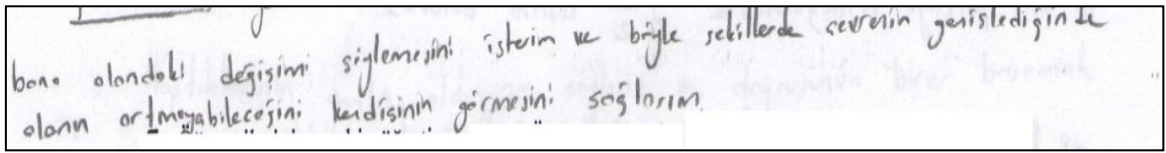 bana alandaki değişimi söylemesini isterim ve böyle şekillerde çevrenin genişlediğinde
alanın artmayabileceğini kendisinin görmesini sağlarım.